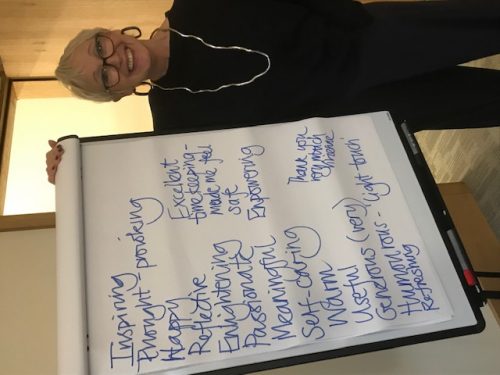 Inspiring
Thought provoking
Happy
Reflective
Enlightening
Passionate
Meaningful
Self-caring
Warm
Useful (very)
Generous
Humorous - Light touch
Refreshing
Excellent
timekeeping -
made me feel
safe
Empowering
Thank you
very much